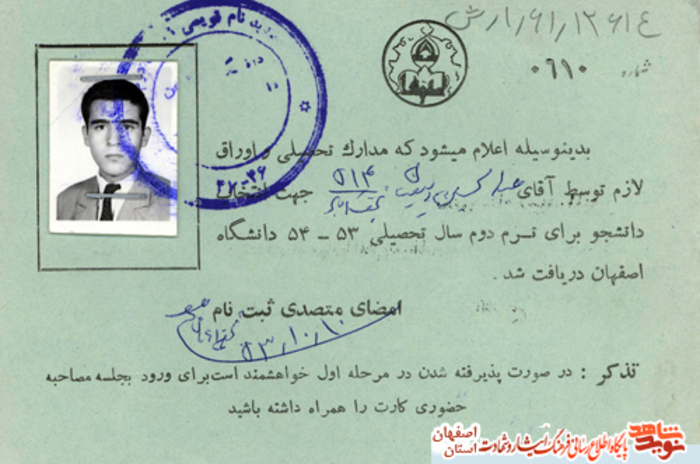 شماره ۰۶۱۰
بدینوسیله اعلام میشود که مدارك تحصیلی و اوراق
لازم توسط آقای جهت انتخاب
دانشجو برای ترم دوم سال تحصیلی ۵۳ - ۵۴ دانشگاه
اصفهان دریافت شد .
امضای متصدی ثبت نام
۵۳/۱۰/۱۰
تذکر : در صورت پذیرفته شدن در مرحله اول خواهشمند است برای ورود بجلسه مصاحبه
حضوری کارت را همراه داشته باشید
نوید شاهد پایگاه اطلاع رسانی فرهنگ ایثار و شهادت استان اصفهان